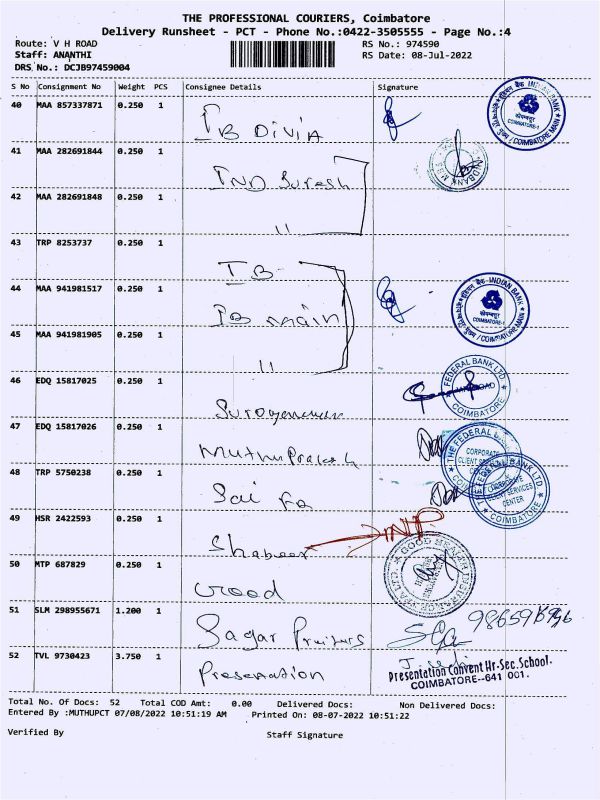 THE PROFESSIONAL COURIERS, Coimbatore
Delivery Runsheet - PCT - Phone No.:0422-3505555 - Page No.:4
Route: V H ROAD
RS No.: 974590
Staff: ANANTHI
RS Date: 08-Jul-2022
DRS No.: DCJB97459004
S No Consignment No Weight PCS Consignee Details Signature
40 MAA 857337871 0.250 1 IB DIVIA
इंडियन बैंक INDIAN BANK
कोयम्बत्तूर
COIMBATORE-1
COIMBATORE MAIN
41 MAA 282691844 0.250 1 IND Suresh
42 MAA 282691848 0.250 1 "
43 TRP 8253737 0.250 1 IB
44 MAA 941981517 0.250 1 IB main
इंडियन बैंक-INDIAN BANK
कोयम्बत्तूर
COIMBATORE-1
COIMBATORE MAIN
45 MAA 941981905 0.250 1 "
46 EDQ 15817025 0.250 1
FEDERAL BANK LTD.
COIMBATORE
47 EDQ 15817026 0.250 1 Muthuprakash
THE FEDERAL BANK
CORPORATE
CLIENT SERVICES
48 TRP 5750238 0.250 1 Sai Fa
FEDERAL BANK LTD.
CORPORATE
CLIENT SERVICES
CENTER
COIMBATORE
49 HSR 2422593 0.250 1 Shabeer
50 MTP 687829 0.250 1 Good
GOOD HEALTH INSURANCE TPA LTD.
51 SLM 298955671 1.200 1 Sagar Printers
52 TVL 9730423 3.750 1 Presenation
Presentation Convent Hr-Sec.School.
COIMBATORE--641 001.
Total No. Of Docs: 52 Total COD Amt: 0.00 Delivered Docs: Non Delivered Docs:
Entered By :MUTHUPCT 07/08/2022 10:51:19 AM Printed On: 08-07-2022 10:51:22
Verified By Staff Signature